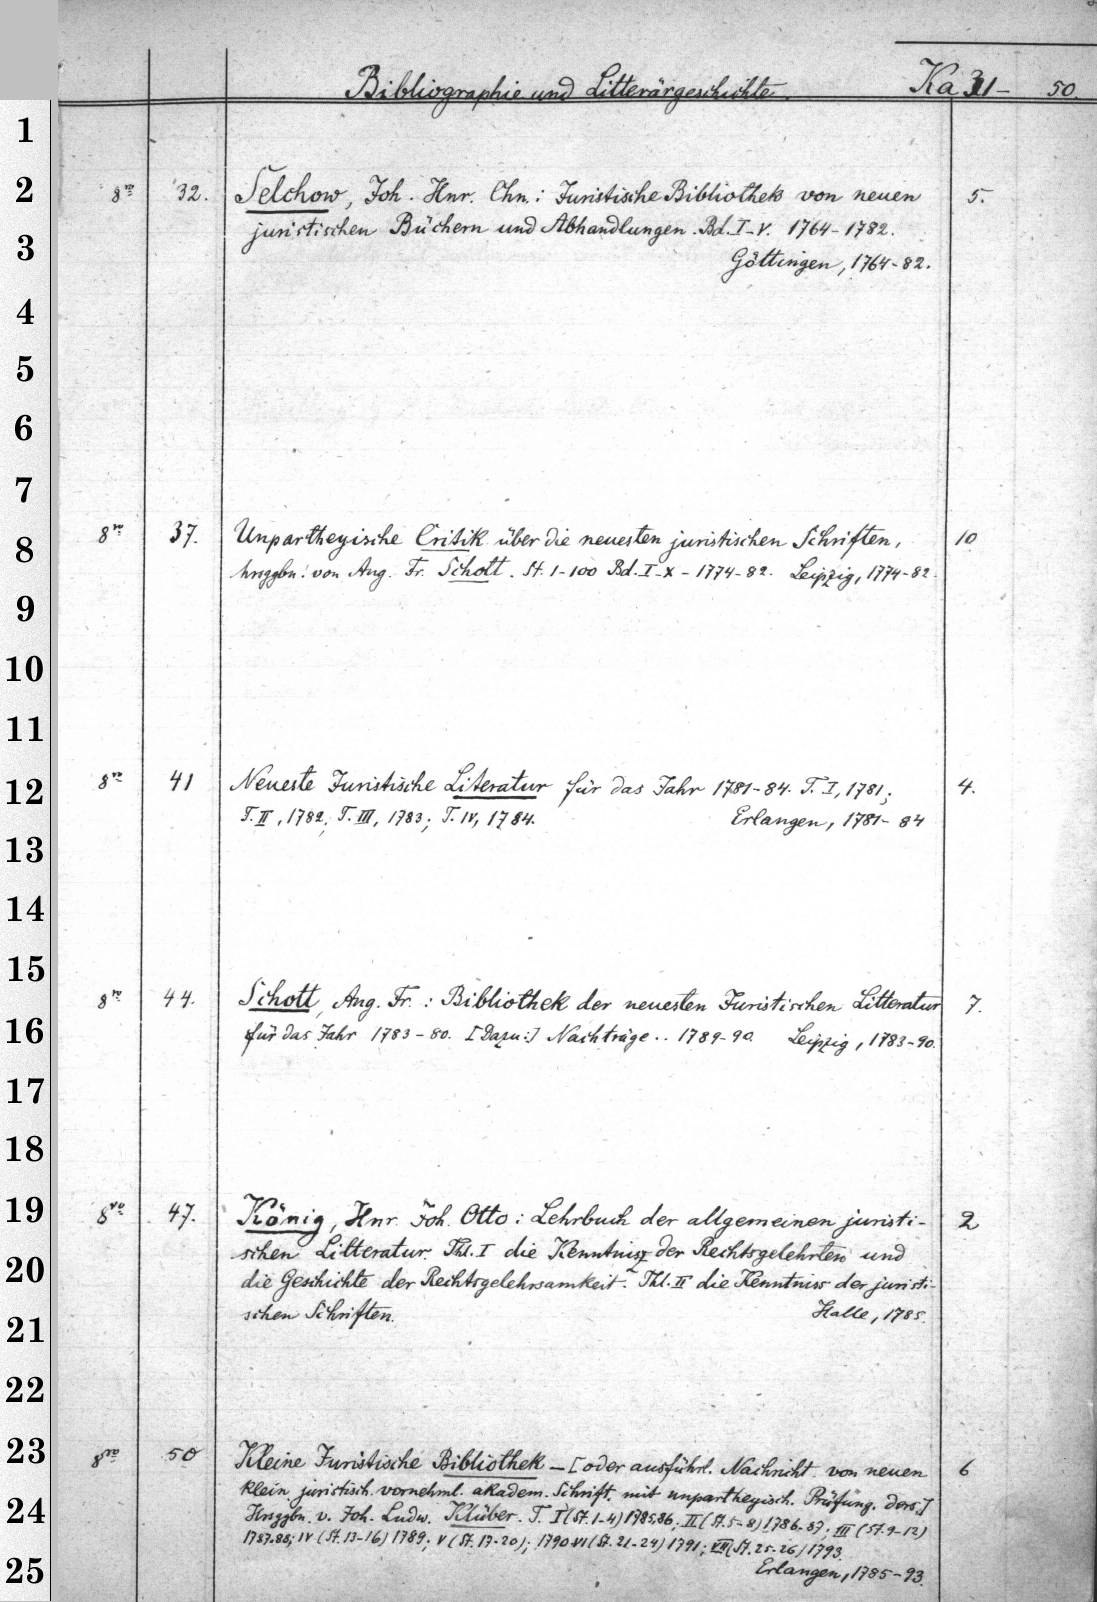 Bibliographie und Litterärgeschichte. Ka 31- 50.
1
2 8vo 32. Selchow, Joh. Hnr. Chn.: Juristische Bibliothek von neuen 5.
juristischen Büchern und Abhandlungen. Bd. I-V. 1764-1782.
3 Göttingen, 1764-82.
4
5
6
7
8 8vo 37. Unpartheyische Critik über die neuesten juristischen Schriften, 10
hrsggbn. von Aug. Fr. Schott. St. 1-100 Bd. I-X - 1774-82. Leipzig, 1774-82.
9
10
11
12 8vo 41 Neueste Juristische Literatur für das Jahr 1781-84. T. I, 1781; 4.
T. II, 1782; T. III, 1783; T. IV, 1784. Erlangen, 1781-84
13
14
15
8vo 44. Schott, Aug. Fr.: Bibliothek der neuesten Juristischen Litteratur 7.
16 für das Jahr 1783-80. [Dazu:] Nachträge.. 1789-90. Leipzig, 1783-90.
17
18
19 8vo 47. König, Hnr. Joh. Otto: Lehrbuch der allgemeinen juristi- 2
schen Litteratur. Thl. I die Kenntniss der Rechtsgelehrten und
20 die Geschichte der Rechtsgelehrsamkeit. Thl. II die Kenntniss der juristi-
21 schen Schriften. Halle, 1785.
22
23 8vo 50 Kleine Juristische Bibliothek - [oder ausführl. Nachricht von neuen 6
klein juristisch. vornehml. akadem. Schrift. mit unpartheyisch. Prüfung. ders.]
24 Hrsggbn. v. Joh. Ludw. Klüber. T. I (St. 1-4) 1785,86; II (St. 5-8) 1786-87; III (St. 9-12)
1787-88; IV (St. 13-16) 1789; V (St. 17-20); 1790 VI (St. 21-24) 1791; VII (St. 25-26) 1793.
25 Erlangen, 1785-93.